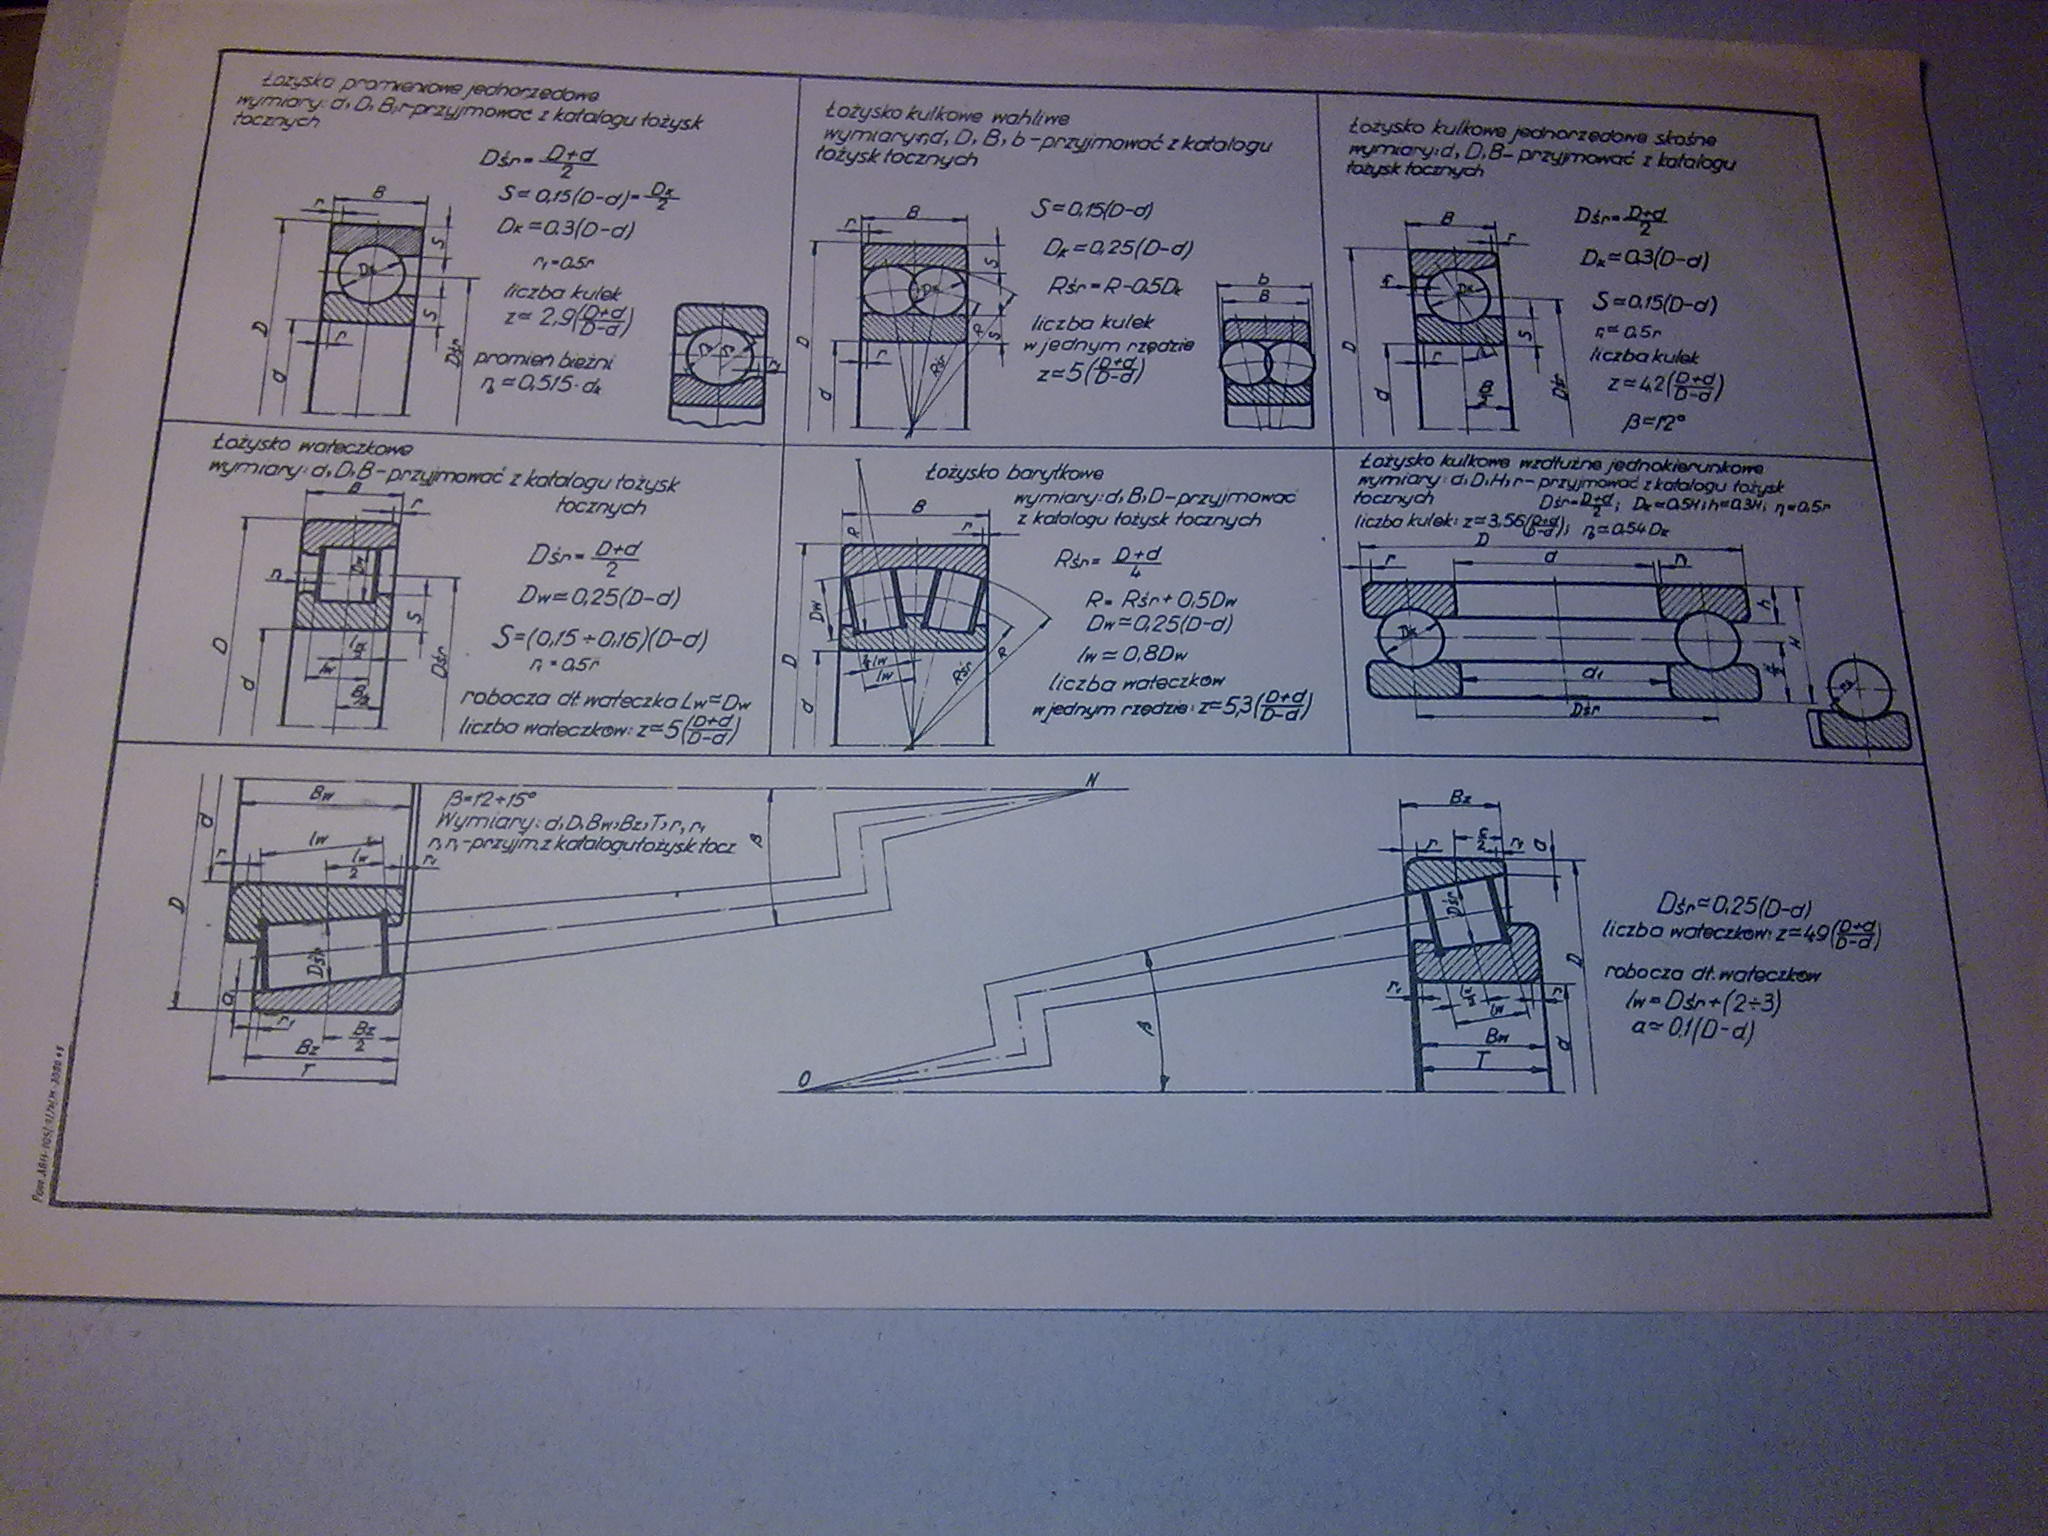 Łożyska promieniowe jednorzędowe
wymiary: d, D, B, r-przyjmować z katalogu łożysk
tocznych
Dśr= D+d/2
S≈0,15(D-d)= Dk/2
Dk≈0.3(D-d)
r₁=0.5r
liczba kulek
z≈ 2,9(D+d/D-d)
promień bieżni
rb≈0,515·dk
B
r
S
Dk
D
d
Dśr
Łożysko kulkowe wahliwe
wymiary: r, d, D, B, b -przyjmować z katalogu
łożysk tocznych
S≈0,15(D-d)
Dk≈0,25(D-d)
Rśr=R-0.5Dk
liczba kulek
w jednym rzędzie
z≈5(D+d/D-d)
B
r
S
Dk
R
Rśr
D
d
b
B
Łożysko kulkowe jednorzędowe skośne
wymiary: d, D, B- przyjmować z katalogu
łożysk tocznych
Dśr= D+d/2
Dk≈0.3(D-d)
S≈0.15(D-d)
r₁≈0.5r
liczba kulek
z≈4,2(D+d/D-d)
β≈12°
B
r
Dk
S
D
d
B/2
Dśr
Łożysko wałeczkowe
wymiary: d, D, B-przyjmować z katalogu łożysk
tocznych
Dśr= D+d/2
Dw≈0,25(D-d)
S=(0,15÷0,16)(D-d)
r₁=0.5r
robocza dł. wałeczka Lw≈Dw
liczba wałeczków: z≈5(D+d/D-d)
B
r
r₁
D
d
S
lw/2
lw
B/2
Dśr
Łożysko baryłkowe
wymiary: d, B, D-przyjmować
z katalogu łożysk tocznych
Rśr= D+d/4
R= Rśr+0,5Dw
Dw≈0,25(D-d)
lw≈0,8Dw
liczba wałeczków
w jednym rzędzie: z≈5,3(D+d/D-d)
R
B
r
Dw
lw
D
d
Rśr
R
Łożysko kulkowe wzdłużne jednokierunkowe
wymiary: d, D, H, r- przyjmować z katalogu łożysk
tocznych Dśr=D+d/2; Dk≈0,5H; h≈0,3H; r₁=0,5r
liczba kulek: z≈3,56(D+d/D-d); rb≈0.54Dk
D
r
d
r₁
h
H
Dk
d₁
Dśr
β=12÷15°
Wymiary: d, D, Bw, Bz, T, r, r₁
r, r₁-przyjm. z katalogu łożysk tocz
Bw
lw
lw/2
r
r₁
d
D
Dśr
a
r₁
Bz/2
Bz
T
β
N
O
β
Bz
r
r₁
a
Dśr
D
d
r₁
lw
r
Bw
T
Dśr≈0,25(D-d)
liczba wałeczków: z≈4,9(D+d/D-d)
robocza dł. wałeczków
lw=Dśr+(2÷3)
a≈0.1(D-d)